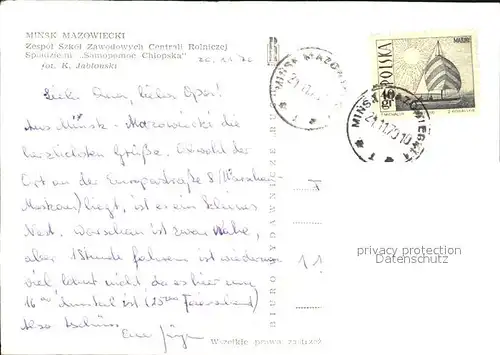 MIŃSK MAZOWIECKI
Zespół Szkół Zawodowych Centrali Rolniczej
Spółdzielni „Samopomoc Chłopska"
fot. K. Jabłoński
20.11.70
Liebe Oma, lieber Opa!
Aus Minsk Mazowiecki die
herzlichsten Grüße. Obwohl der
Ort an der Europastraße 8 (Warschau-
Moskau) liegt, ist es ein
Nest. Warschau ist zwar Nähe,
aber 1 Stunde fahren ist
viel lohnt nicht da es hier um
16 dunkel ist (15 Feierabend)
Also tschüss
Eue Jürgen
BIURO WYDAWNICZE RUCH
Wszelkie prawa zastrzeż
MIŃSK MAZOWIECKI
21.11.70
1
MIŃSK MAZOWIECKI
21.11.70 10
1
MAZURY
POLSKA
40 GR
privacy protection
Datenschutz